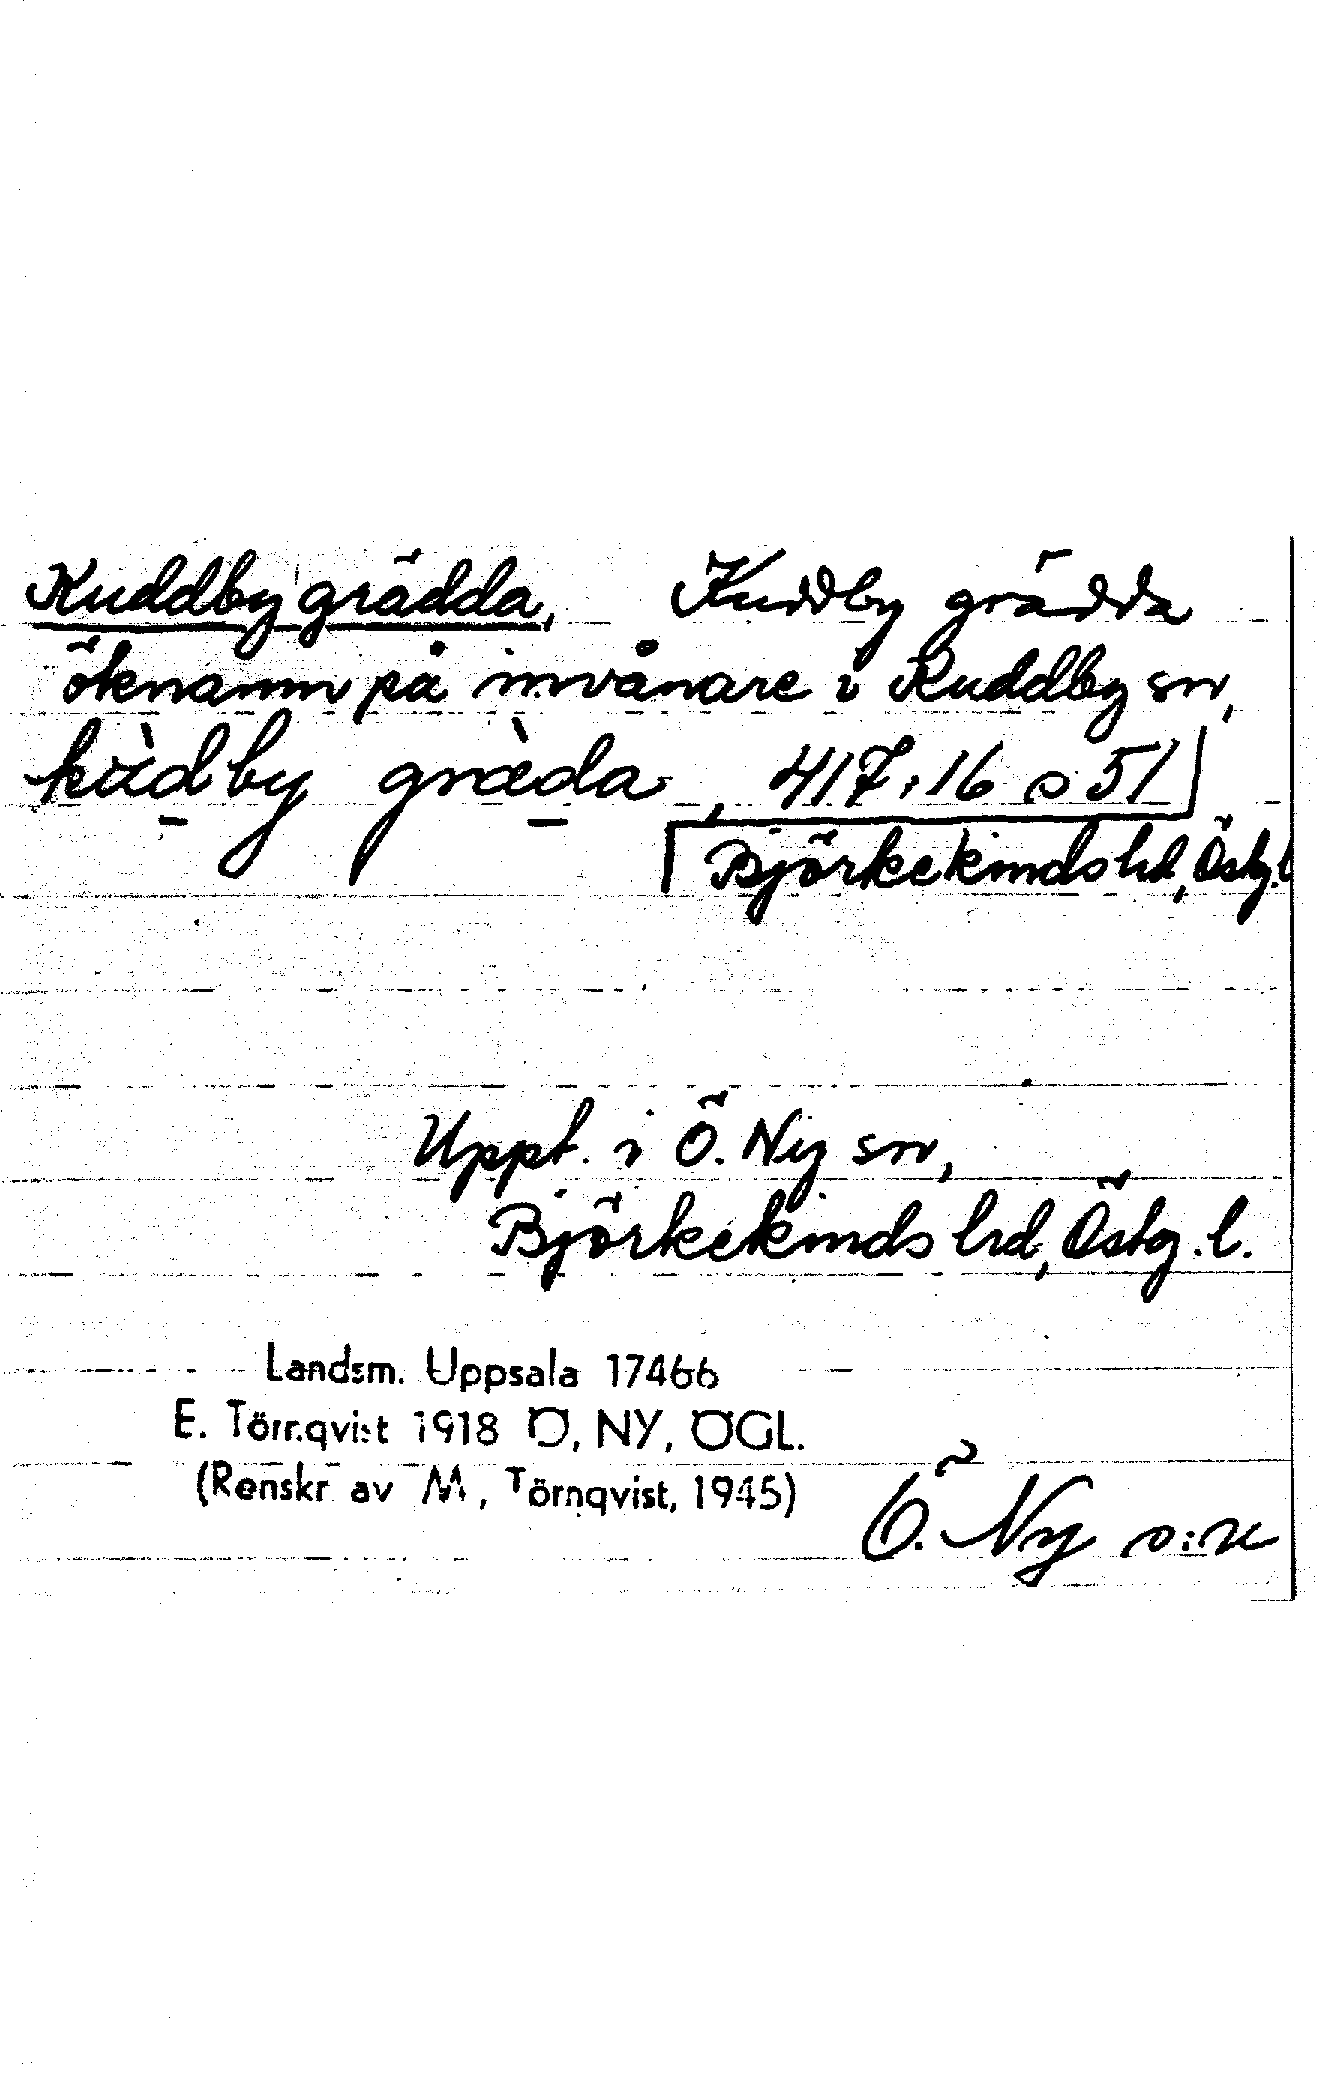 Kuddby grädda, Kuddby grädda
öknamn på invånare i Kuddby sn,
kùdby græ̀da, 417,16 o 51
Björkekinds hd, Östg.l
Uppt. i Ö. Ny sn,
Björkekinds hd, Östg.l.
Landsm. Uppsala 17466
E. Törnqvist 1918 Ö, NY, ÖGL.
(Renskr av M, Törnqvist, 1945)
Ö. Ny s:n